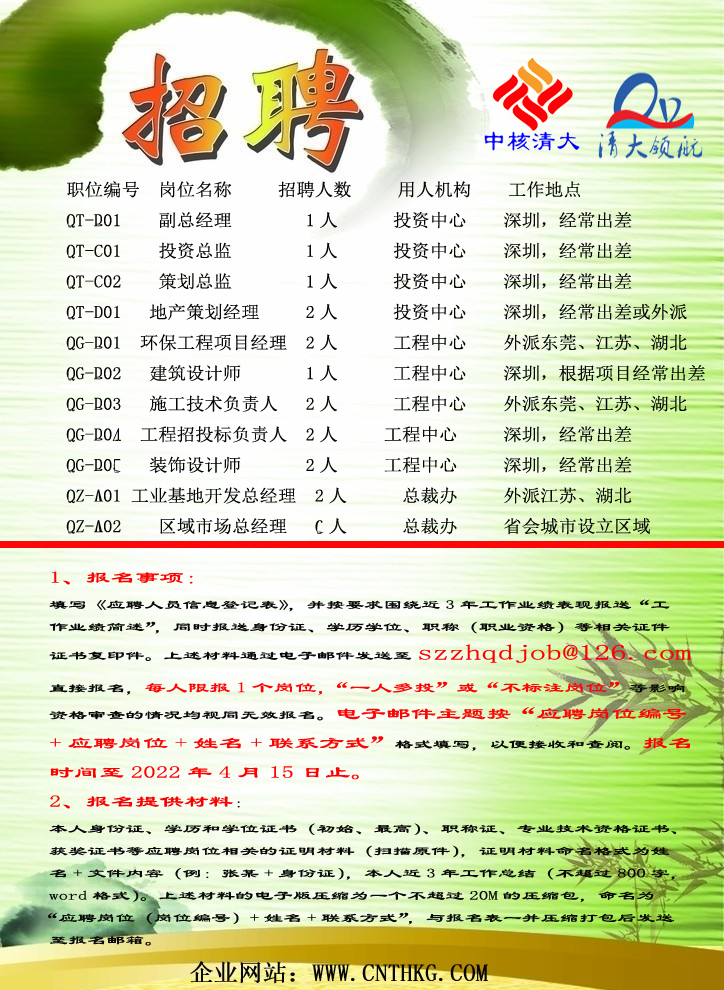 招聘
中核清大
清大领航
职位编号 岗位名称 招聘人数 用人机构 工作地点
QT-B01 副总经理 1人 投资中心 深圳，经常出差
QT-C01 投资总监 1人 投资中心 深圳，经常出差
QT-C02 策划总监 1人 投资中心 深圳，经常出差
QT-D01 地产策划经理 2人 投资中心 深圳，经常出差或外派
QG-B01 环保工程项目经理 2人 工程中心 外派东莞、江苏、湖北
QG-B02 建筑设计师 1人 工程中心 深圳，根据项目经常出差
QG-B03 施工技术负责人 2人 工程中心 外派东莞、江苏、湖北
QG-B04 工程招投标负责人 2人 工程中心 深圳，经常出差
装饰设计师 2人 工程中心 深圳，经常出差
QZ-A01 工业基地开发总经理 2人 总裁办 外派江苏、湖北
QZ-A02 区域市场总经理 人 总裁办 省会城市设立区域
1、报名事项：
填写《应聘人员信息登记表》，并按要求围绕近3年工作业绩表现报送“工
作业绩简述”，同时报送身份证、学历学位、职称（职业资格）等相关证件
证书复印件。上述材料通过电子邮件发送至 szzhqdjob@126.com
直接报名，每人限报1个岗位，“一人多投”或“不标注岗位”等影响
资格审查的情况均视同无效报名。电子邮件主题按“应聘岗位编号
+应聘岗位+姓名+联系方式”格式填写，以便接收和查阅。报名
时间至2022年4月15日止。
2、报名提供材料：
本人身份证、学历和学位证书（初始、最高）、职称证、专业技术资格证书、
获奖证书等应聘岗位相关的证明材料（扫描原件），证明材料命名格式为姓
名+文件内容（例：张某+身份证），本人近3年工作总结（不超过800字，
word格式）。上述材料的电子版压缩为一个不超过20M的压缩包，命名为
“应聘岗位（岗位编号）+姓名+联系方式”，与报名表一并压缩打包后发送
至报名邮箱。
企业网站：WWW.CNTHKG.COM